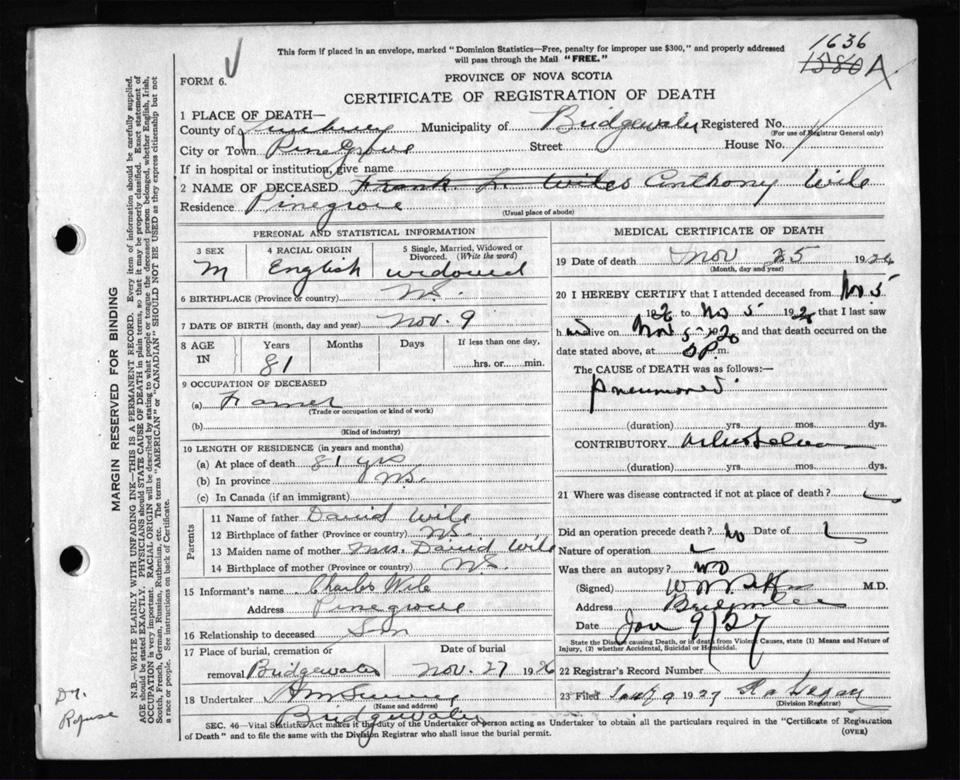 This form if placed in an envelope, marked "Dominion Statistics—Free, penalty for improper use $300," and properly addressed
will pass through the Mail "FREE."
1636
1580 A
FORM 6.
PROVINCE OF NOVA SCOTIA
CERTIFICATE OF REGISTRATION OF DEATH
1 PLACE OF DEATH—
County of Lunenburg Municipality of Bridgewater Registered No.
(For use of Registrar General only)
City or Town Pinegrove Street House No.
If in hospital or institution, give name
2 NAME OF DECEASED Frank L. Wiles Anthony Wile
Residence Pinegrove
(Usual place of abode)
PERSONAL AND STATISTICAL INFORMATION
3 SEX M
4 RACIAL ORIGIN English
5 Single, Married, Widowed or Divorced. (Write the word) widowed
6 BIRTHPLACE (Province or country) N.S.
7 DATE OF BIRTH (month, day and year) Nov. 9
8 AGE IN Years 81 Months Days If less than one day, hrs. or min.
9 OCCUPATION OF DECEASED
(a) Framer
(Trade or occupation or kind of work)
(b)
(Kind of industry)
10 LENGTH OF RESIDENCE (in years and months)
(a) At place of death 81 yrs
(b) In province N.S.
(c) In Canada (if an immigrant)
Parents
11 Name of father David Wile
12 Birthplace of father (Province or country) N.S.
13 Maiden name of mother Mrs. David Wile
14 Birthplace of mother (Province or country) N.S.
15 Informant's name Charles Wile
Address Pinegrove
16 Relationship to deceased Son
17 Place of burial, cremation or removal Bridgewater
Date of burial Nov. 27 1926
18 Undertaker
(Name and address)
Bridgewater
MEDICAL CERTIFICATE OF DEATH
19 Date of death Nov 25 1926
(Month, day and year)
20 I HEREBY CERTIFY that I attended deceased from Nov. 5
192 to Nov 5 192 that I last saw
h alive on Nov 5 192 and that death occurred on
date stated above, at P.m.
The CAUSE of DEATH was as follows:—
Pneumonia
(duration) yrs. mos. dys.
CONTRIBUTORY
(duration) yrs. mos. dys.
21 Where was disease contracted if not at place of death?
Did an operation precede death? No Date of
Nature of operation
Was there an autopsy? No
(Signed) M.D.
Address Bridgewater
Date Jan 9/27
State the Disease causing Death, or in death from Violent Causes, state (1) Means and Nature of
Injury, (2) whether Accidental, Suicidal or Homicidal.
22 Registrar's Record Number
23 Filed 9 1927
(Division Registrar)
SEC. 46—Vital Statistics Act makes it the duty of the Undertaker or person acting as Undertaker to obtain all the particulars required in the "Certificate of Registration
of Death" and to file the same with the Division Registrar who shall issue the burial permit.
(OVER)
MARGIN RESERVED FOR BINDING
N.B.—WRITE PLAINLY WITH UNFADING INK—THIS IS A PERMANENT RECORD. Every item of information should be carefully supplied.
AGE should be stated EXACTLY. PHYSICIANS should STATE CAUSE OF DEATH in plain terms, so that it may be properly classified. Exact statement of
OCCUPATION is very important. RACIAL ORIGIN will be described by stating to what people or tongue the deceased person belonged, whether English, Irish,
Scotch, French, German, Russian, Ruthenian, etc. The terms "AMERICAN" or "CANADIAN" SHOULD NOT BE USED as they express citizenship but not
a race or people. See instructions on back of Certificate.
Dr.
Refuse